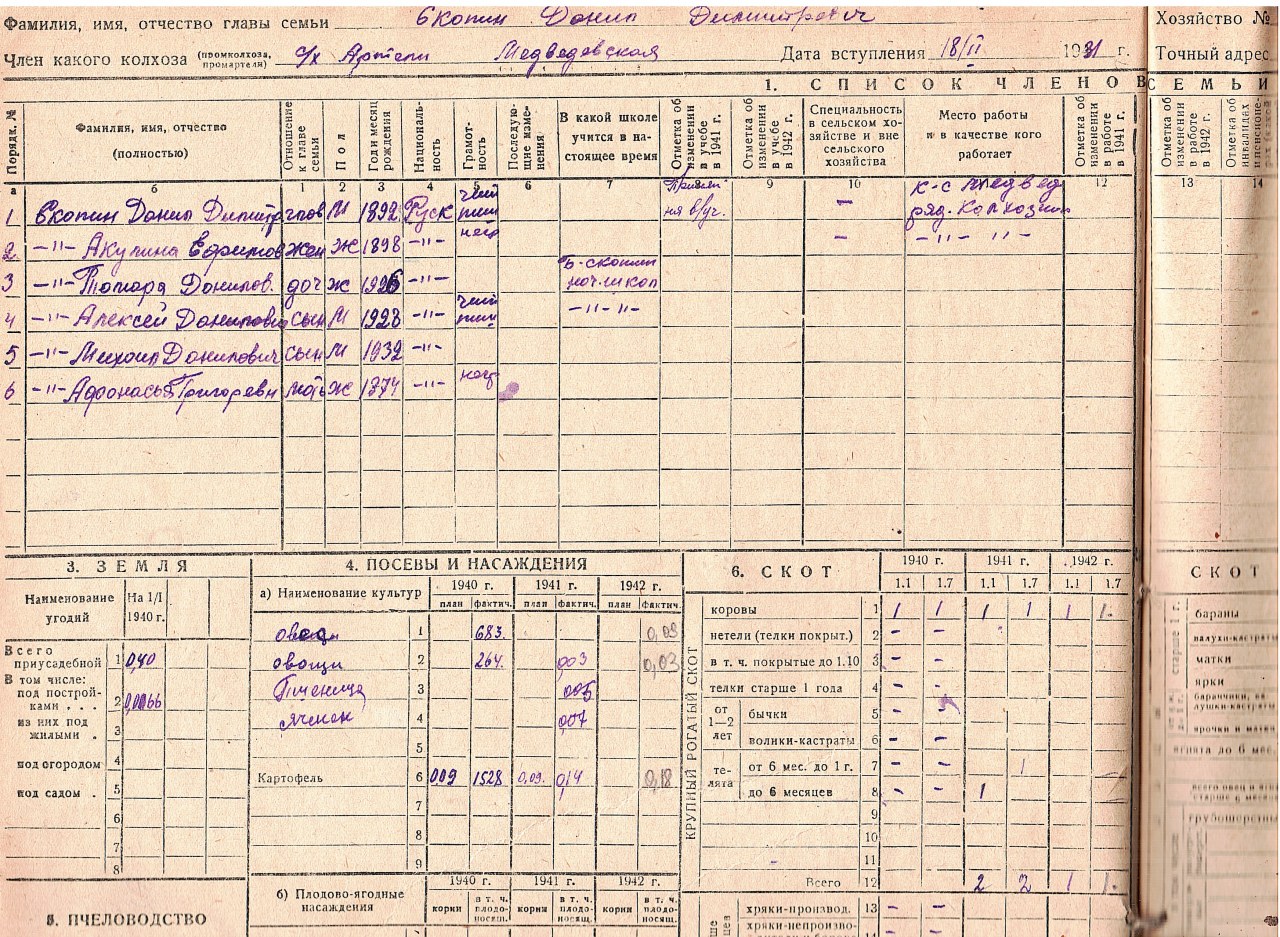 Фамилия, имя, отчество главы семьи Скопин Данил Димитревич
Хозяйство №
Член какого колхоза (промколхоза, промартели) с/х Артели Медведевская Дата вступления 18/II 1931 г.
Точный адрес
1. СПИСОК ЧЛЕНОВ СЕМЬИ
Порядк. №
Фамилия, имя, отчество (полностью)
Отношение к главе семьи
Пол
Год и месяц рождения
Националь-ность
Грамот-ность
Последую-щие изме-нения
В какой школе учится в на-стоящее время
Отметка об изменении в учебе в 1941 г.
Отметка об изменении в учебе в 1942 г.
Специальность в сельском хо-зяйстве и вне сельского хозяйства
Место работы и в качестве кого работает
Отметка об изменении в работе в 1941 г.
Отметка об изменении в работе в 1942 г.
Отметка об инвалидах
а б 1 2 3 4 5 6 7 8 9 10 11 12 13 14
1 Скопин Данил Димитр глов М 1892 Руск – к-с Медвед ряд. Колхозник
2 –"– Акулина Ефримов жен Ж 1898 –"– негр – –"– "–
3 –"– Тамара Данилов. доч Ж 1926 –"– Б-скопин нач.школ
4 –"– Алексей Данилович сын М 1928 –"– –"– "–
5 –"– Михаил Данилович сын М 1932 –"–
6 –"– Афонасья Григоревн мать Ж 1874 –"– негр
3. ЗЕМЛЯ
Наименование угодий
На 1/I 1940 г.
Всего приусадебной 1 0,40
В том числе:
под построй-ками . . . 2
из них под жилыми . 3
под огородом 4
под садом . 5
6
7
8
5. ПЧЕЛОВОДСТВО
4. ПОСЕВЫ И НАСАЖДЕНИЯ
а) Наименование культур
1940 г. 1941 г. 1942 г.
план фактич. план фактич. план фактич.
1 683. 0,03
овощи 2 264. 003 0,03
Пшеница 3 005
ячмен 4 007
5
Картофель 6 009 1528 0,09. 014 0,18
7
8
9
б) Плодово-ягодные насаждения
1940 г. 1941 г. 1942 г.
корни в т. ч. плодо-носящ. корни в т. ч. плодо-носящ. корни в т. ч. плодо-носящ.
6. СКОТ
1940 г. 1941 г. 1942 г.
1.1 1.7 1.1 1.7 1.1 1.7
КРУПНЫЙ РОГАТЫЙ СКОТ
коровы 1 1 1 1 1 1 1.
нетели (телки покрыт.) 2 – –
в т. ч. покрытые до 1.10 3 – –
телки старше 1 года 4 – –
от 1—2 лет
бычки 5 –
волики-кастраты 6 – –
те-лята
от 6 мес. до 1 г. 7 – – 1
до 6 месяцев 8 – – 1
9
10
11
Всего 12 2 2 1 1.
хряки-производ. 13 – –
хряки-непроизво-
СКОТ
старше 1 г.
бараны
валухи-кастраты
матки
ярки
ягнята до 6 мес.
грубошерстны